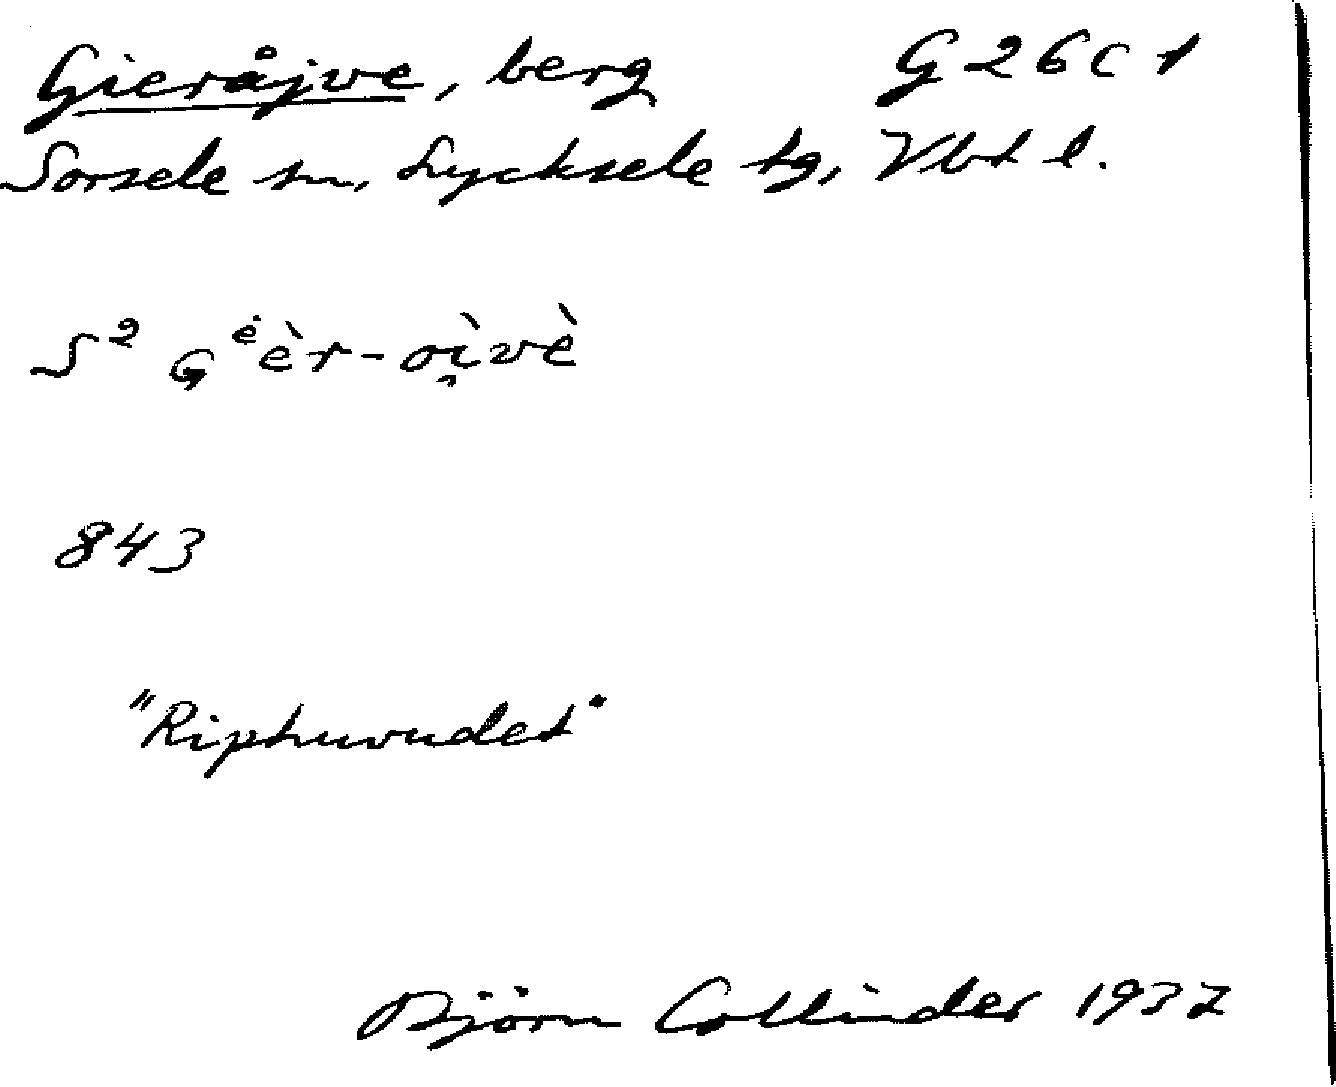 Gieråjve, berg G 26 C 1
Sorsele sn, Lycksele tg, Vbt l.
S² Gᵉ̇èr-oì̯vè
843
"Riphuvudet"
Björn Collinder 1937